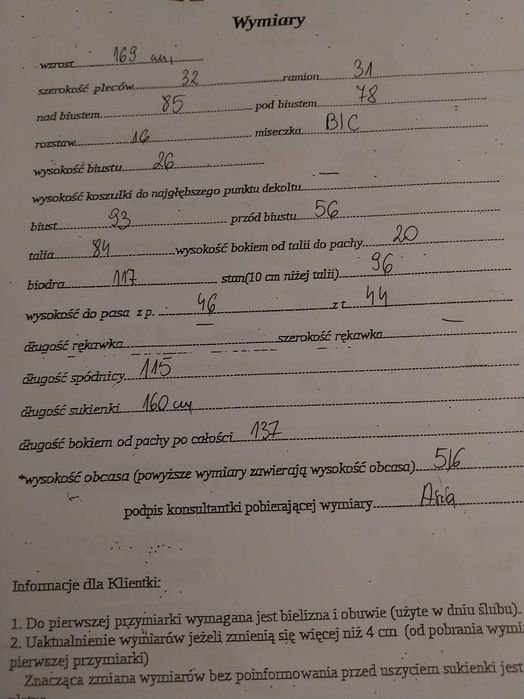 Wymiary
wzrost 169 cm
szerokość pleców 32 ramion 31
nad biustem 85 pod biustem 78
rozstaw 16 miseczka B/C
wysokość biustu 26
wysokość koszulki do najgłębszego punktu dekoltu —
biust 93 przód biustu 56
talia 84 wysokość bokiem od talii do pachy 20
biodra 117 stan(10 cm niżej talii) 96
wysokość do pasa z p. 46 z t 44
długość rękawka — szerokość rękawka —
długość spódnicy 115
długość sukienki 160 cm
długość bokiem od pachy po całości 137
*wysokość obcasa (powyższe wymiary zawierają wysokość obcasa) 5/6
podpis konsultantki pobierającej wymiary Asia
Informacje dla Klientki:
1. Do pierwszej przymiarki wymagana jest bielizna i obuwie (użyte w dniu ślubu).
2. Uaktualnienie wymiarów jeżeli zmienią się więcej niż 4 cm (od pobrania wymi
pierwszej przymiarki)
Znacząca zmiana wymiarów bez poinformowania przed uszyciem sukienki jest